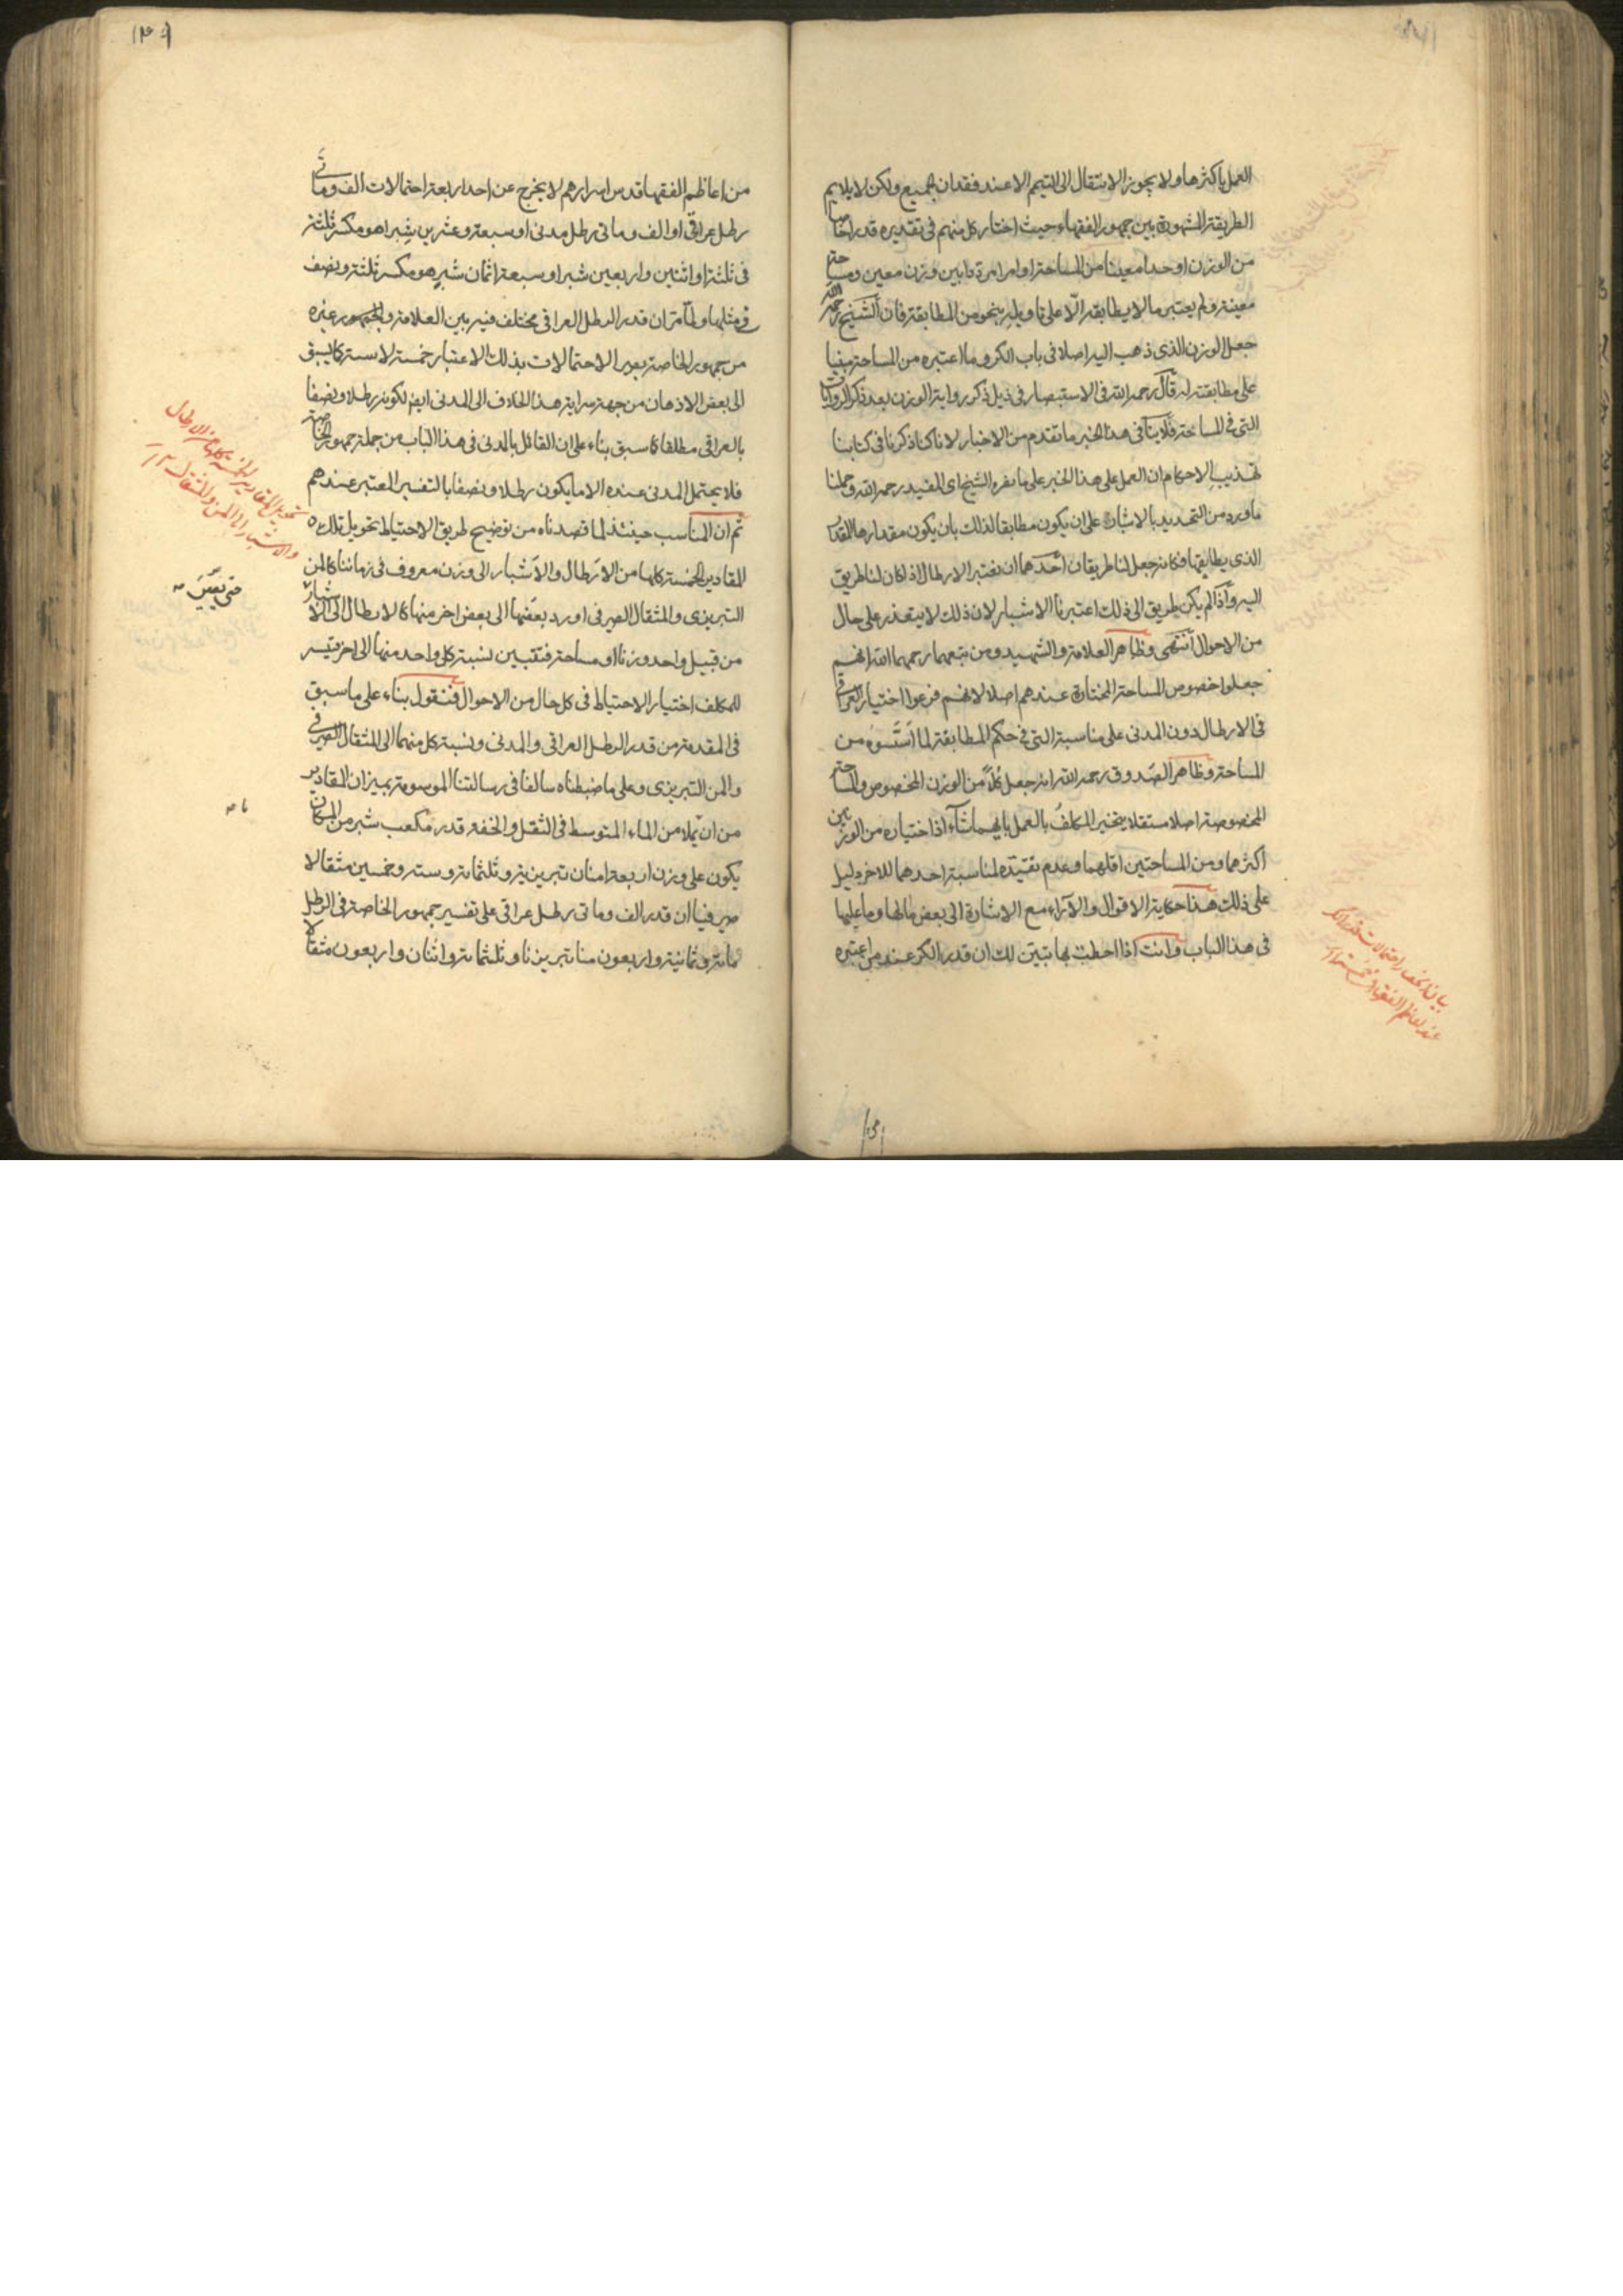 العمل باكثرها ولا يجوز الانتقال الى التيمم الا عند فقدان الجميع ولكن لا يلايم
الطريقة المشهورة بين جمهور الفقهاء حيث اختار كل منهم فى تقديره قدرا خاصا
من الوزن او حدا معينا من المساحة او امرا مرددا بين وزن معين ومساحة
معينة ولم يعتبر ما لا يطابقه الّا على تاويله بنحو من المطابقة فان الشيخ رحمه الله
جعل الوزن الذى ذهب اليه اصلا فى باب الكر وما اعتبره من المساحة مبنيا
على مطابقته له قال رحمه الله فى الاستبصار فى ذيل ذكر رواية الوزن بعد ذكر الروايات
التى فى المساحة فلا ينافى هذا الخبر ما تقدم من الاخبار لانا كنا ذكرنا فى كتابنا
تهذيب الاحكام ان العمل على هذا الخبر على ما نصره الشيخ اى المفيد رحمه الله وحملنا
ما ورد من التحديد بالاشبار على ان يكون مطابقا لذلك بان يكون مقدارها المقدار
الذى يطابقها فكانه جعل لنا طريقان احدهما ان نعتبر الارطال اذا كان لنا طريق
اليه واذا لم يكن طريق الى ذلك اعتبرنا الاشبار لان ذلك لا يتعذر على حال
من الاحوال انتهى وظاهر العلامة والشهيد ومن تبعهما رحمهما الله انهم
جعلوا خصوص المساحة المختارة عندهم اصلا لانهم فرعوا اختيار العراقى
فى الارطال دون المدنى على مناسبته التى فى حكم المطابقة لما اسّسوه من
المساحة وظاهر الصدوق رحمه الله انه جعل كلاً من الوزن المخصوص والمساحة
المخصوصة اصلا مستقلا بتخيير المكلف بالعمل بايهما شاء اذا اختياره من الوزنين
اكثرهما ومن المساحتين اقلهما وعدم تقيّده لمناسبة احدهما للاخر دليل
على ذلك هذا حكاية الاقوال والآراء مع الاشارة الى بعض ما لها وما عليها
فى هذا الباب وانت اذا احطت بها تبيّن لك ان قدر الكر عند من اعتبره
بيان انحصار احتمالات قدر الكر
عند اعاظم الفقهاء فى خمسة
١٣٩
من اعاظم الفقهاء قدس اسرارهم لا يخرج عن احد اربعة احتمالات الف ومأتى
رطل عراقىّ او الف ومأتى رطل مدنى او سبعة وعشرين شبرا هو مكسر ثلثة
فى ثلثة او اثنين واربعين شبرا وسبعة اثمان شبر هو مكسر ثلثة ونصف
فى مثلها ولمّا مرّ ان قدر الرطل العراقى مختلف فيه بين العلامة والجمهور غيره
من جمهور الخاصة يصير الاحتمالات بذلك الاعتبار خمسة لا ستة كما يسبق
الى بعض الاذهان من جهة سراية هذا الخلاف الى المدنى ايضا لكونه رطلا ونصفا
بالعراقى مطلقا كما سبق بناء على ان القائل بالمدنى فى هذا الباب من جملة جمهور الخاصة
فلا يحتمل المدنى عنده الا ما يكون رطلا ونصفا بالتفسير المعتبر عندهم
ثم ان المناسب حينئذ لما قصدناه من توضيح طريق الاحتياط تحويل تلك
المقادير الخمسة كلها من الارطال والاشبار الى وزن معروف فى زماننا كالمن
التبريزى والمثقال الصيرفى او رد بعضها الى بعض اخر منها كالارطال الى الاشبار
من قبيل واحد وزنا او مساحة فتتبين نسبة كل واحد منها الى اخر فتيسر
للمكلف اختيار الاحتياط فى كل حال من الاحوال فنقول بناء على ما سبق
فى المقدمة من قدر الرطل العراقى والمدنى ونسبة كل منهما الى المثقال الصيرفى
والمن التبريزى وعلى ما ضبطناه سالفا فى رسالتنا الموسومة بميزان المقادير
من ان ما يملا من الماء المتوسط فى الثقل والخفة قدر مكعب شبر من المكان
يكون على وزن اربعة امنان تبريزية وثلثمائة وستة وخمسين مثقالا
صيرفيا ان قدر الف ومأتى رطل عراقى على تفسير جمهور الخاصة فى الرطل
مائة وثمانية واربعون منا تبريزنا وثلثمائة واثنان واربعون مثقالا
تحويل المقادير الخمسة كلها من الارطال
والاشبار الى المن والمثقال